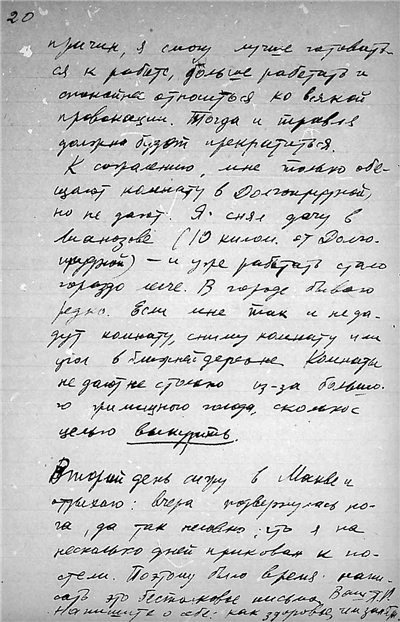 20
причин, я смогу лучше готовить-
ся к работе, больше работать и
спокойнее относиться ко всякой
провокации. Тогда и травля
должна будет прекратиться.
К сожалению, мне только обе-
щают комнату в Долгопрудной,
но не дают. Я снял дачу в
Лианозове (10 килом. от Долго-
прудной) – и уже работать стало
гораздо легче. В городе бываю
редко. Если мне так и не да-
дут комнату, сниму комнату или
угол в ближней деревне. Комнаты
не дают не столько из-за большо-
го жилищного голода, сколько с
целью выкурить.
Второй день сижу в Москве и
отдыхаю: вчера подвернулась но-
га, да так неловко, что я на
несколько дней прикован к по-
стели. Поэтому было время напи-
сать это бестолковое письмо. Ваш
Напишите о себе: как здоровье, как